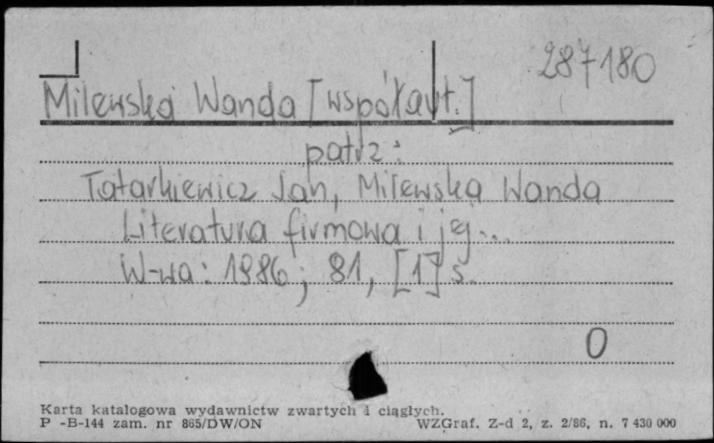 287180
Milewska Wanda [współaut.]
patrz:
Tatarkiewicz Jan, Milewska Wanda
Literatura firmowa i jej...
W-wa: 1986; 81, [1] s.
0
Karta katalogowa wydawnictw zwartych i ciągłych.
P -B-144 zam. nr 865/DW/ON WZGraf. Z-d 2, z. 2/86, n. 7 430 000